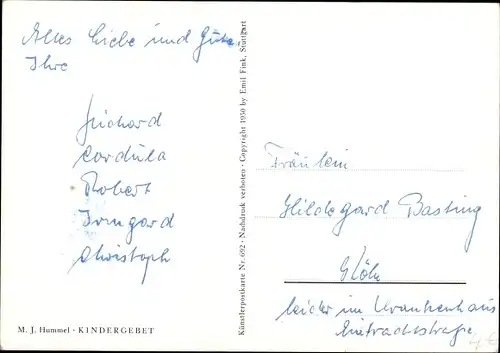 Alles Liebe und Gute.
Ihre
Richard
Cordula
Robert
Irmgard
Christoph
M. J. Hummel · KINDERGEBET
Künstlerpostkarte Nr. 692 · Nachdruck verboten · Copyright 1930 by Emil Fink, Stuttgart
Fräulein
Hildegard Basting
Köln
leider im Krankenhaus
Eintrachtstraße